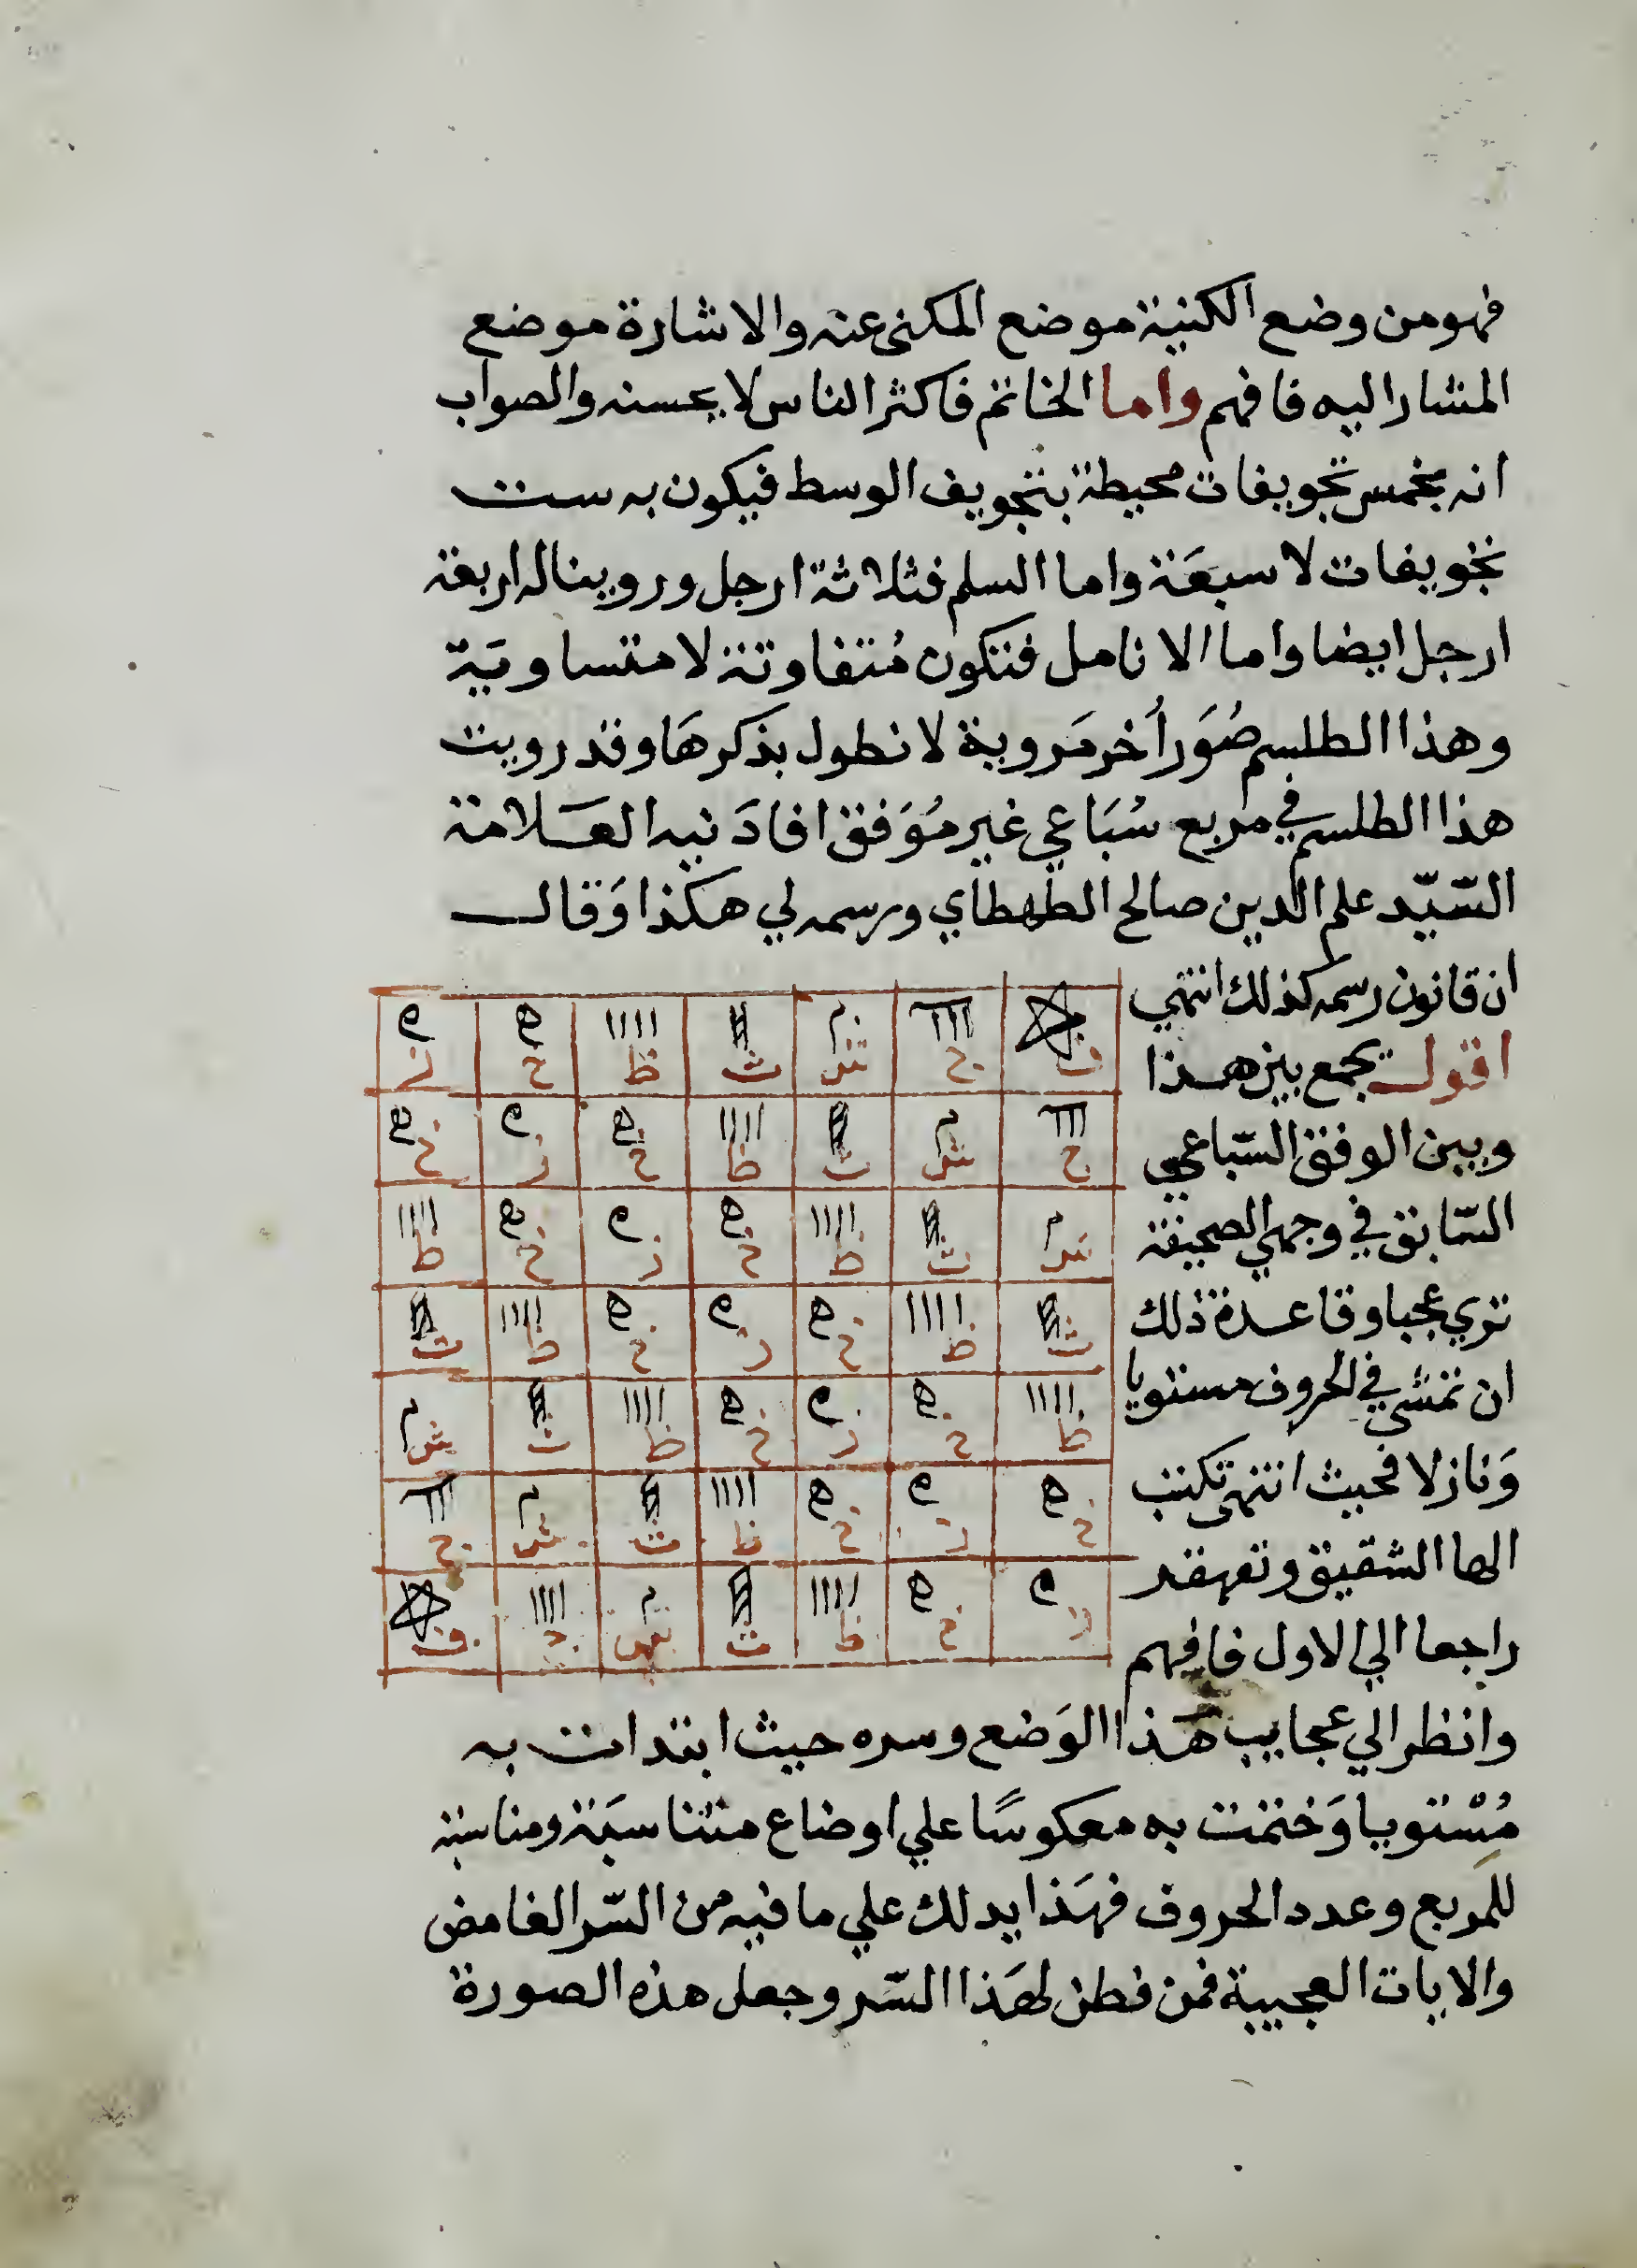 فهو من وضع الكنية موضع المكنى عنه والاشارة موضع
المشار اليه فافهم واما الخاتم فاكثر الناس لا يحسنه والصواب
انه بخمس تجويفات محيطة بتجويف الوسط فيكون به ست
تجويفات لا سبعَة واما السلم فثلاثة ارجل وروينا له اربعة
ارجل ايضا واما الانامل فتكون مُتفاوتة لا متساويَة
وهذا الطلسم صُوَر أخر مَروية لا نطول بذكرهَا وقد رويت
هذا الطلسم في مربع سُبَاعي غير مُوَفق افادَنيه العَلامة
السّيّد علم الدين صالح الطهطاي ورسمه لي هكذا وَقال
ان قانون رسمه كذلك انتهي
اقول تجمع بين هذا
وبين الوفق السّباعي
السّابق في وجهي الصحيفة
تري عجبا وقاعدة ذلك
ان تمشي في الحروف مستويا
وَنازلا فحيث انتهى تكتب
الها الشقيق وتقهقر
راجعا الي الاول فافهم
ف ج ش ث ظ خ ز
ج ش ث ظ خ ز خ
ش ث ظ خ ز خ ظ
ث ظ خ ز خ ظ ث
ظ خ ز خ ظ ث ش
خ ز خ ظ ث ش ج
ز خ ظ ث ش ج ف
وانظر الي عجايب هَذا الوَضع وسره حيث ابتدات به
مُسْتويا وَختمت به معكوسًا علي اوضاع متناسبَة ومناسبة
للمربع وعدد الحروف فهَذا يدلك علي ما فيه من السّر الغامض
والايات العجيبة فمن فطن لهَذا السّر وجعل هذه الصورة